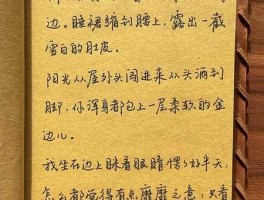 边。睡裙缩到腰上，露出一截
雪白的肚皮。
阳光从屋外头闯进来从头洒到
脚，你浑身都包上一层柔软的金
边儿。
我坐在边上眯着眼睛愣了好半天，
怎么都觉得有点靡靡之意；只看